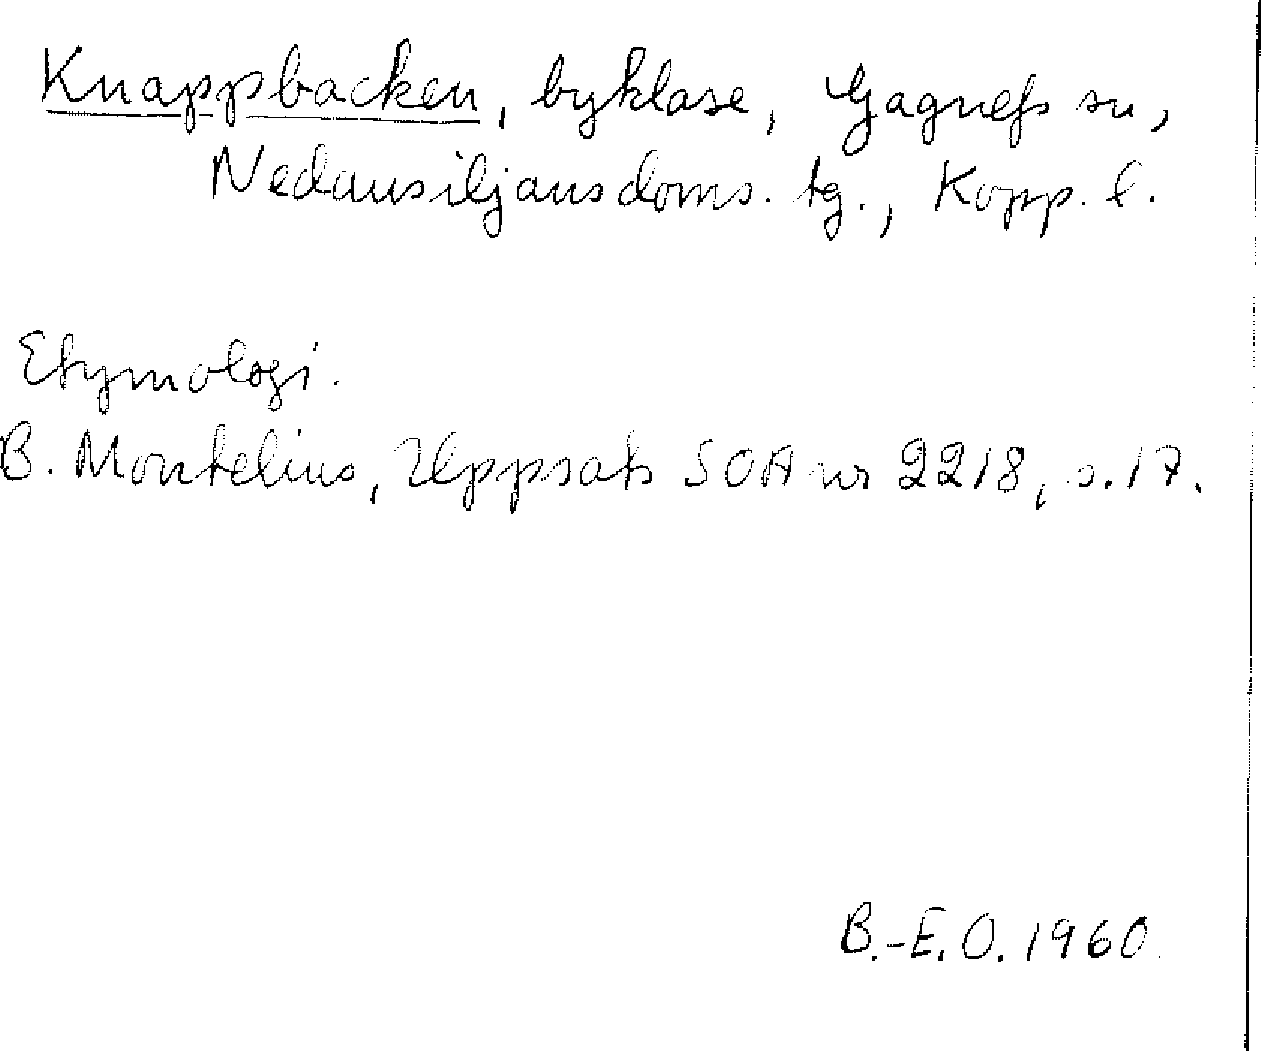 Knappbacken, byklase, Gagnefs sn,
Nedansiljans doms. tg., Kopp. l.
Etymologi.
B. Montelius, Uppsats SOA nr 2218, s. 17.
B.-E. O. 1960.